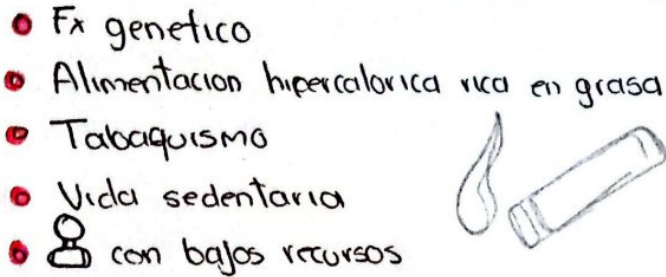 Fx genetico
Alimentacion hipercalorica rica en grasa
Tabaquismo
Vida sedentaria
con bajos recursos